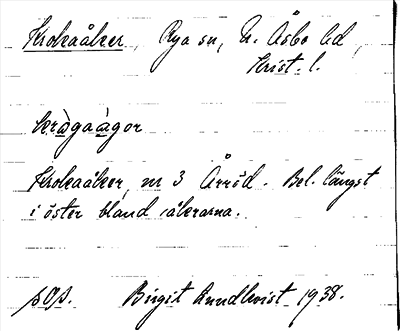 Krokaåker, Rya sn, N. Åsbo hd,
Krist. l.
kràgaàgor
Krokaåker, nr 3 Årröd. Bel. längst
i öster bland åkrarna.
Birgit Rundkvist 1938.